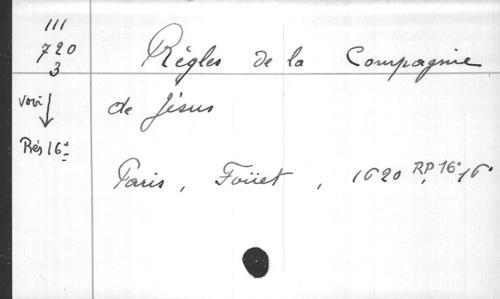 111
720
3
Règles de la Compagnie
voir
de Jésus
Rés 16º
Paris, Foüet, 1620 R.P. 16º, 16º